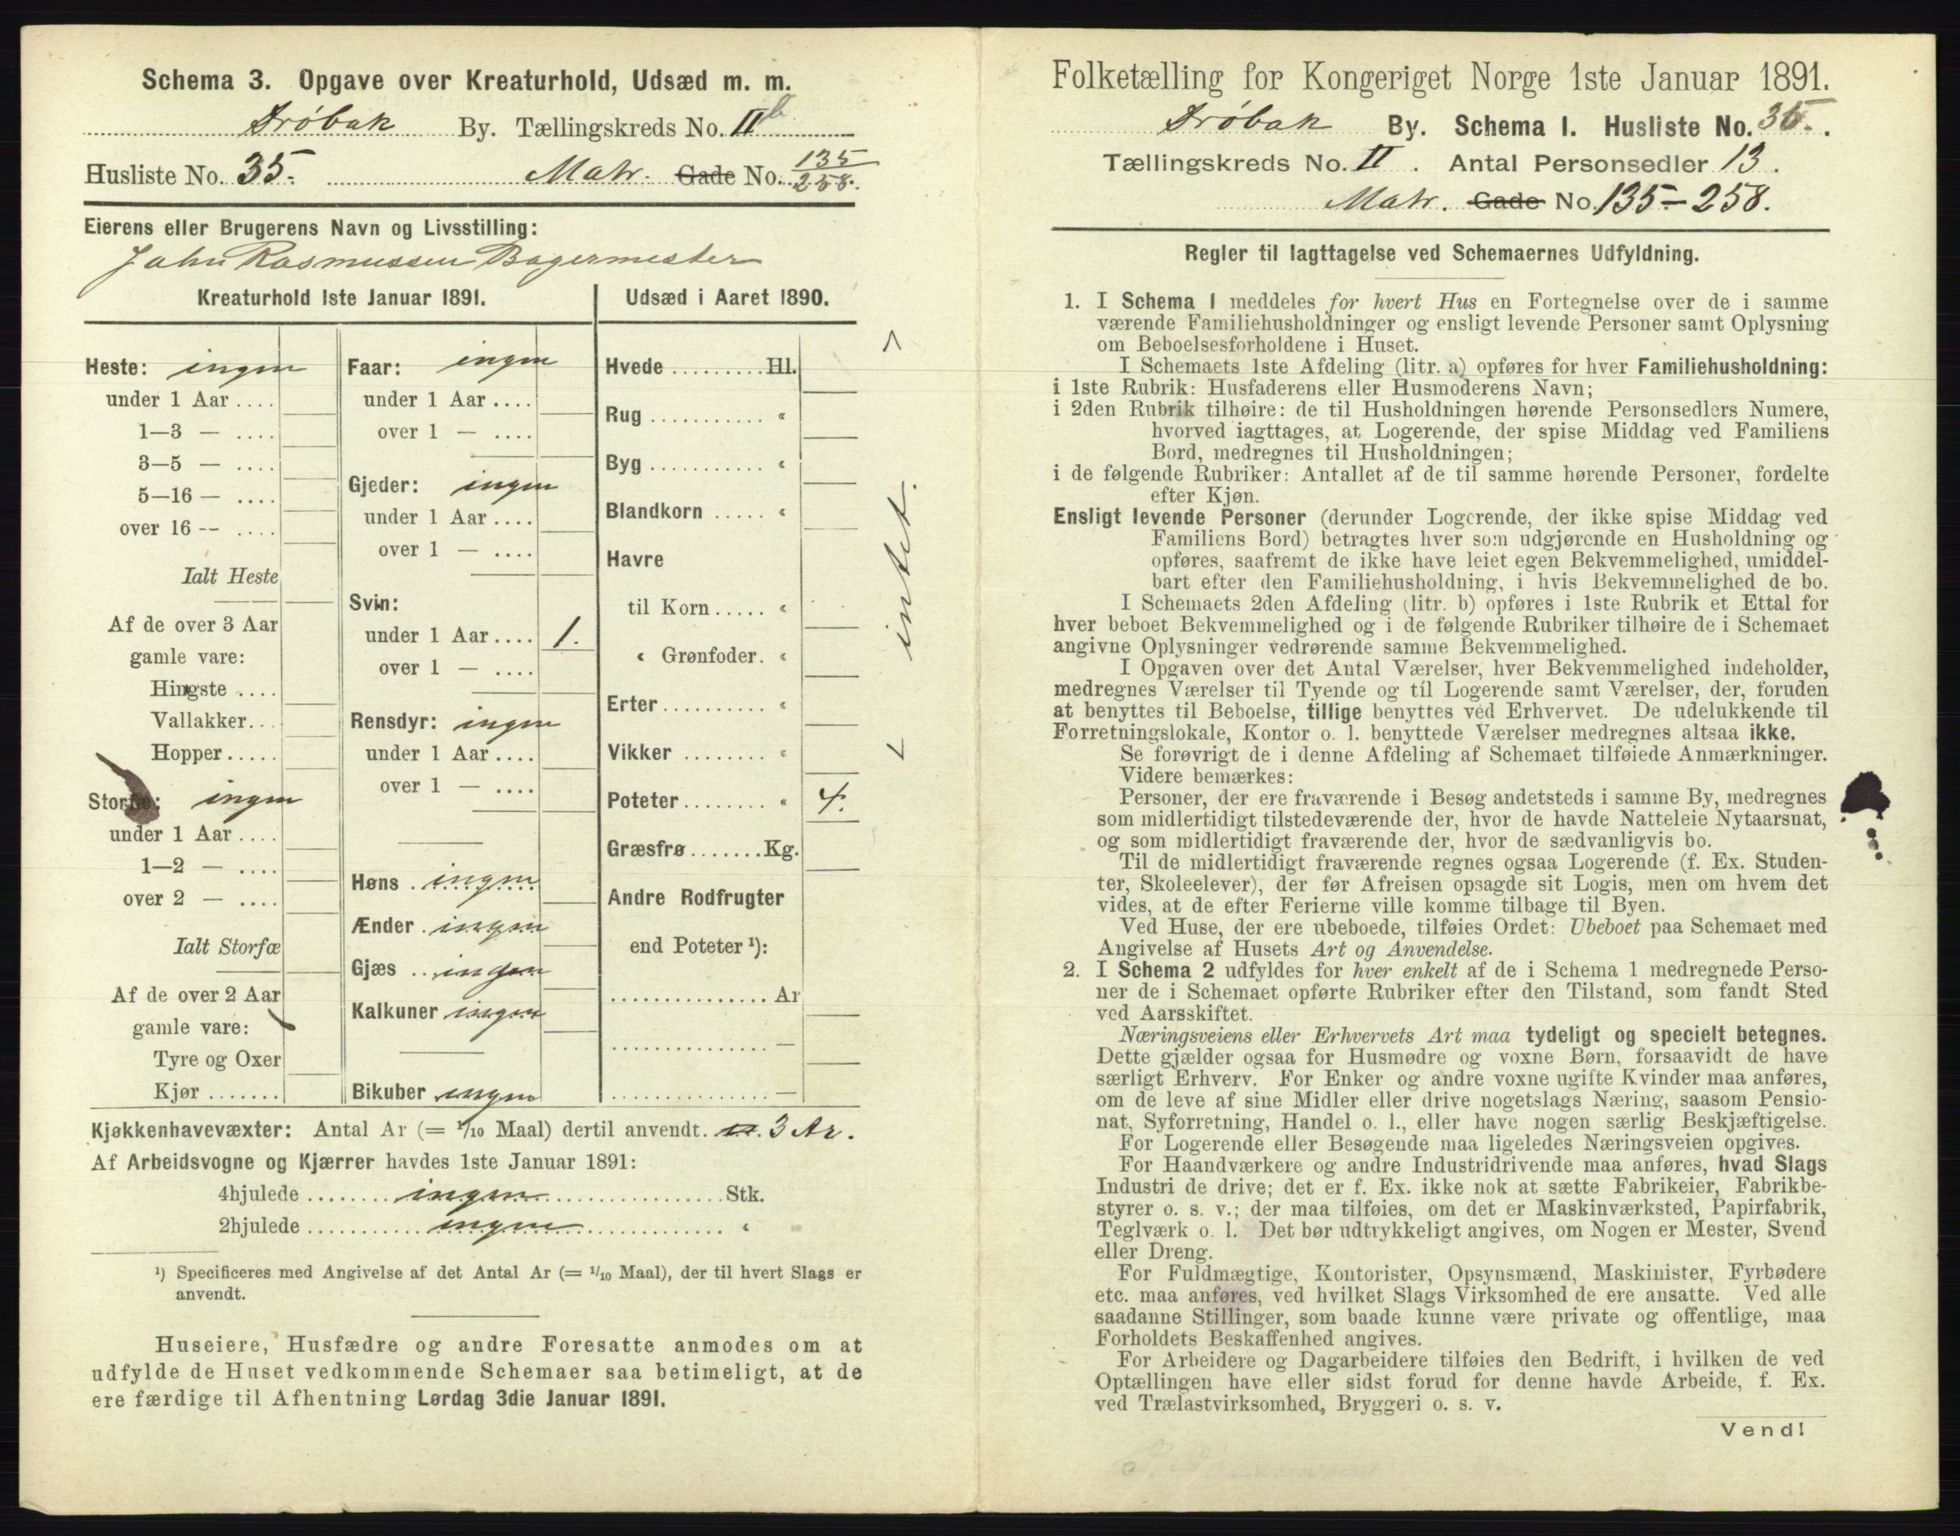 Schema 3. Opgave over Kreaturhold, Udsæd m. m.
Drøbak By. Tællingskreds No. IIb
Husliste No. 35. Matr. Gade No. 135/258.
Eierens eller Brugerens Navn og Livsstilling:
John Rasmussen Bagermester
Kreaturhold 1ste Januar 1891.
Heste: ingen
under 1 Aar ....
1—3 — ....
3—5 — ....
5—16 — ....
over 16 — ....
Ialt Heste
Af de over 3 Aar
gamle vare:
Hingste ....
Vallakker...
Hopper.....
Storfæ: ingen
under 1 Aar ....
1—2 — ....
over 2 — ....
Ialt Storfæ
Af de over 2 Aar
gamle vare:
Tyre og Oxer
Kjør .......
Faar: ingen
under 1 Aar ....
over 1 — ....
Gjeder: ingen
under 1 Aar ....
over 1 — ....
Svin:
under 1 Aar .... 1.
over 1 — ....
Rensdyr: ingen
under 1 Aar ....
over 1 — ....
Høns . ingen
Ænder . ingen
Gjæs .. ingen
Kalkuner ingen
Bikuber ingen
Udsæd i Aaret 1890.
Hvede ......... Hl.
Rug ........... «
Byg ........... «
Blandkorn ..... «
Havre
til Korn ..... «
« Grønfoder. «
Erter.......... «
Vikker ........ «
Poteter........ « 4.
Græsfrø ....... Kg.
Andre Rodfrugter
end Poteter ¹):
............... Ar
............... —
............... —
intet.
Kjøkkenhavevæxter: Antal Ar (= 1/10 Maal) dertil anvendt. 3 Ar.
Af Arbeidsvogne og Kjærrer havdes 1ste Januar 1891:
4hjulede ........ ingen ........ Stk.
2hjulede ........ ingen ........ «
¹) Specificeres med Angivelse af det Antal Ar (= 1/10 Maal), der til hvert Slags er
anvendt.
Huseiere, Husfædre og andre Foresatte anmodes om at
udfylde de Huset vedkommende Schemaer saa betimeligt, at de
ere færdige til Afhentning Lørdag 3die Januar 1891.
Folketælling for Kongeriget Norge 1ste Januar 1891.
Drøbak By. Schema 1. Husliste No. 35.
Tællingskreds No. II. Antal Personsedler 13.
Matr. Gade No. 135—258.
Regler til Iagttagelse ved Schemaernes Udfyldning.
1. I Schema 1 meddeles for hvert Hus en Fortegnelse over de i samme
værende Familiehusholdninger og ensligt levende Personer samt Oplysning
om Beboelsesforholdene i Huset.
I Schemaets 1ste Afdeling (litr. a) opføres for hver Familiehusholdning:
i 1ste Rubrik: Husfaderens eller Husmoderens Navn;
i 2den Rubrik tilhøire: de til Husholdningen hørende Personsedlers Numere,
hvorved iagttages, at Logerende, der spise Middag ved Familiens
Bord, medregnes til Husholdningen;
i de følgende Rubriker: Antallet af de til samme hørende Personer, fordelte
efter Kjøn.
Ensligt levende Personer (derunder Logerende, der ikke spise Middag ved
Familiens Bord) betragtes hver som udgjørende en Husholdning og
opføres, saafremt de ikke have leiet egen Bekvemmelighed, umiddel-
bart efter den Familiehusholdning, i hvis Bekvemmelighed de bo.
I Schemaets 2den Afdeling (litr. b) opføres i 1ste Rubrik et Ettal for
hver beboet Bekvemmelighed og i de følgende Rubriker tilhøire de i Schemaet
angivne Oplysninger vedrørende samme Bekvemmelighed.
I Opgaven over det Antal Værelser, hver Bekvemmelighed indeholder,
medregnes Værelser til Tyende og til Logerende samt Værelser, der, foruden
at benyttes til Beboelse, tillige benyttes ved Erhvervet. De udelukkende til
Forretningslokale, Kontor o. l. benyttede Værelser medregnes altsaa ikke.
Se forøvrigt de i denne Afdeling af Schemaet tilføiede Anmærkninger.
Videre bemærkes:
Personer, der ere fraværende i Besøg andetsteds i samme By, medregnes
som midlertidigt tilstedeværende der, hvor de havde Natteleie Nytaarsnat,
og som midlertidigt fraværende der, hvor de sædvanligvis bo.
Til de midlertidigt fraværende regnes ogsaa Logerende (f. Ex. Studen-
ter, Skoleelever), der før Afreisen opsagde sit Logis, men om hvem det
vides, at de efter Ferierne ville komme tilbage til Byen.
Ved Huse, der ere ubeboede, tilføies Ordet: Ubeboet paa Schemaet med
Angivelse af Husets Art og Anvendelse.
2. I Schema 2 udfyldes for hver enkelt af de i Schema 1 medregnede Perso-
ner de i Schemaet opførte Rubriker efter den Tilstand, som fandt Sted
ved Aarsskiftet.
Næringsveiens eller Erhvervets Art maa tydeligt og specielt betegnes.
Dette gjælder ogsaa for Husmødre og voxne Børn, forsaavidt de have
særligt Erhverv. For Enker og andre voxne ugifte Kvinder maa anføres,
om de leve af sine Midler eller drive nogetslags Næring, saasom Pensio-
nat, Syforretning, Handel o. l., eller have nogen særlig Beskjæftigelse.
For Logerende eller Besøgende maa ligeledes Næringsveien opgives.
For Haandværkere og andre Industridrivende maa anføres, hvad Slags
Industri de drive; det er f. Ex. ikke nok at sætte Fabrikeier, Fabrikbe-
styrer o. s. v.; der maa tilføies, om det er Maskinværksted, Papirfabrik,
Teglværk o. l. Det bør udtrykkeligt angives, om Nogen er Mester, Svend
eller Dreng.
For Fuldmægtige, Kontorister, Opsynsmænd, Maskinister, Fyrbødere
etc. maa anføres, ved hvilket Slags Virksomhed de ere ansatte. Ved alle
saadanne Stillinger, som baade kunne være private og offentlige, maa
Forholdets Beskaffenhed angives.
For Arbeidere og Dagarbeidere tilføies den Bedrift, i hvilken de ved
Optællingen have eller sidst forud for denne havde Arbeide, f. Ex.
ved Trælastvirksomhed, Bryggeri o. s. v.
Vend!